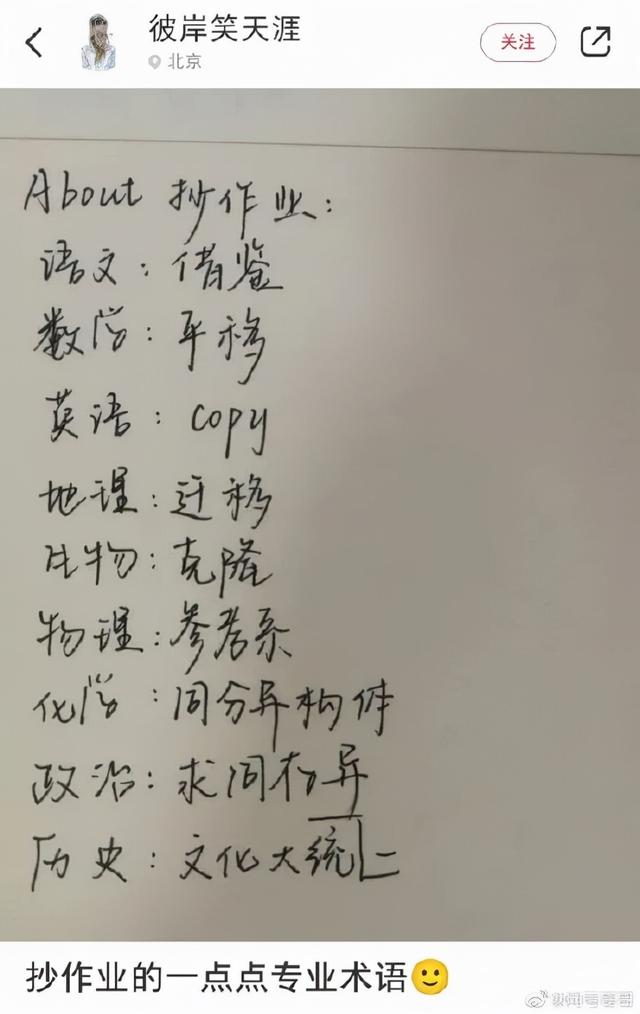 彼岸笑天涯
北京
关注
About 抄作业：
语文：借鉴
数学：平移
英语：copy
地理：迁移
生物：克隆
物理：参考系
化学：同分异构体
政治：求同存异
历史：文化大统一
抄作业的一点点专业术语